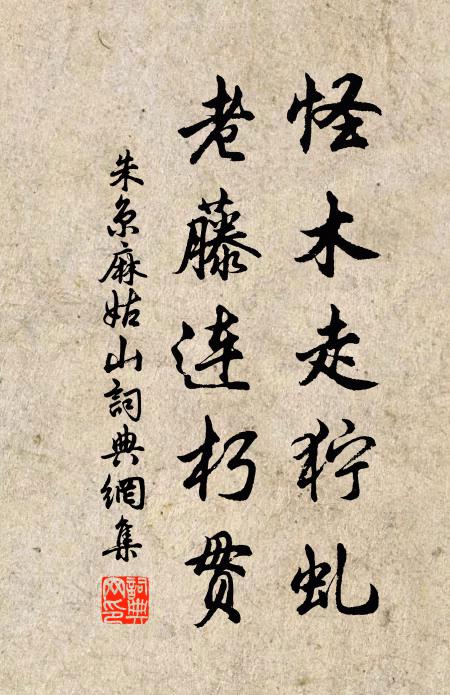 怪木走狞虬
老藤连朽贯
朱京麻姑山詞典網集
詞典网印